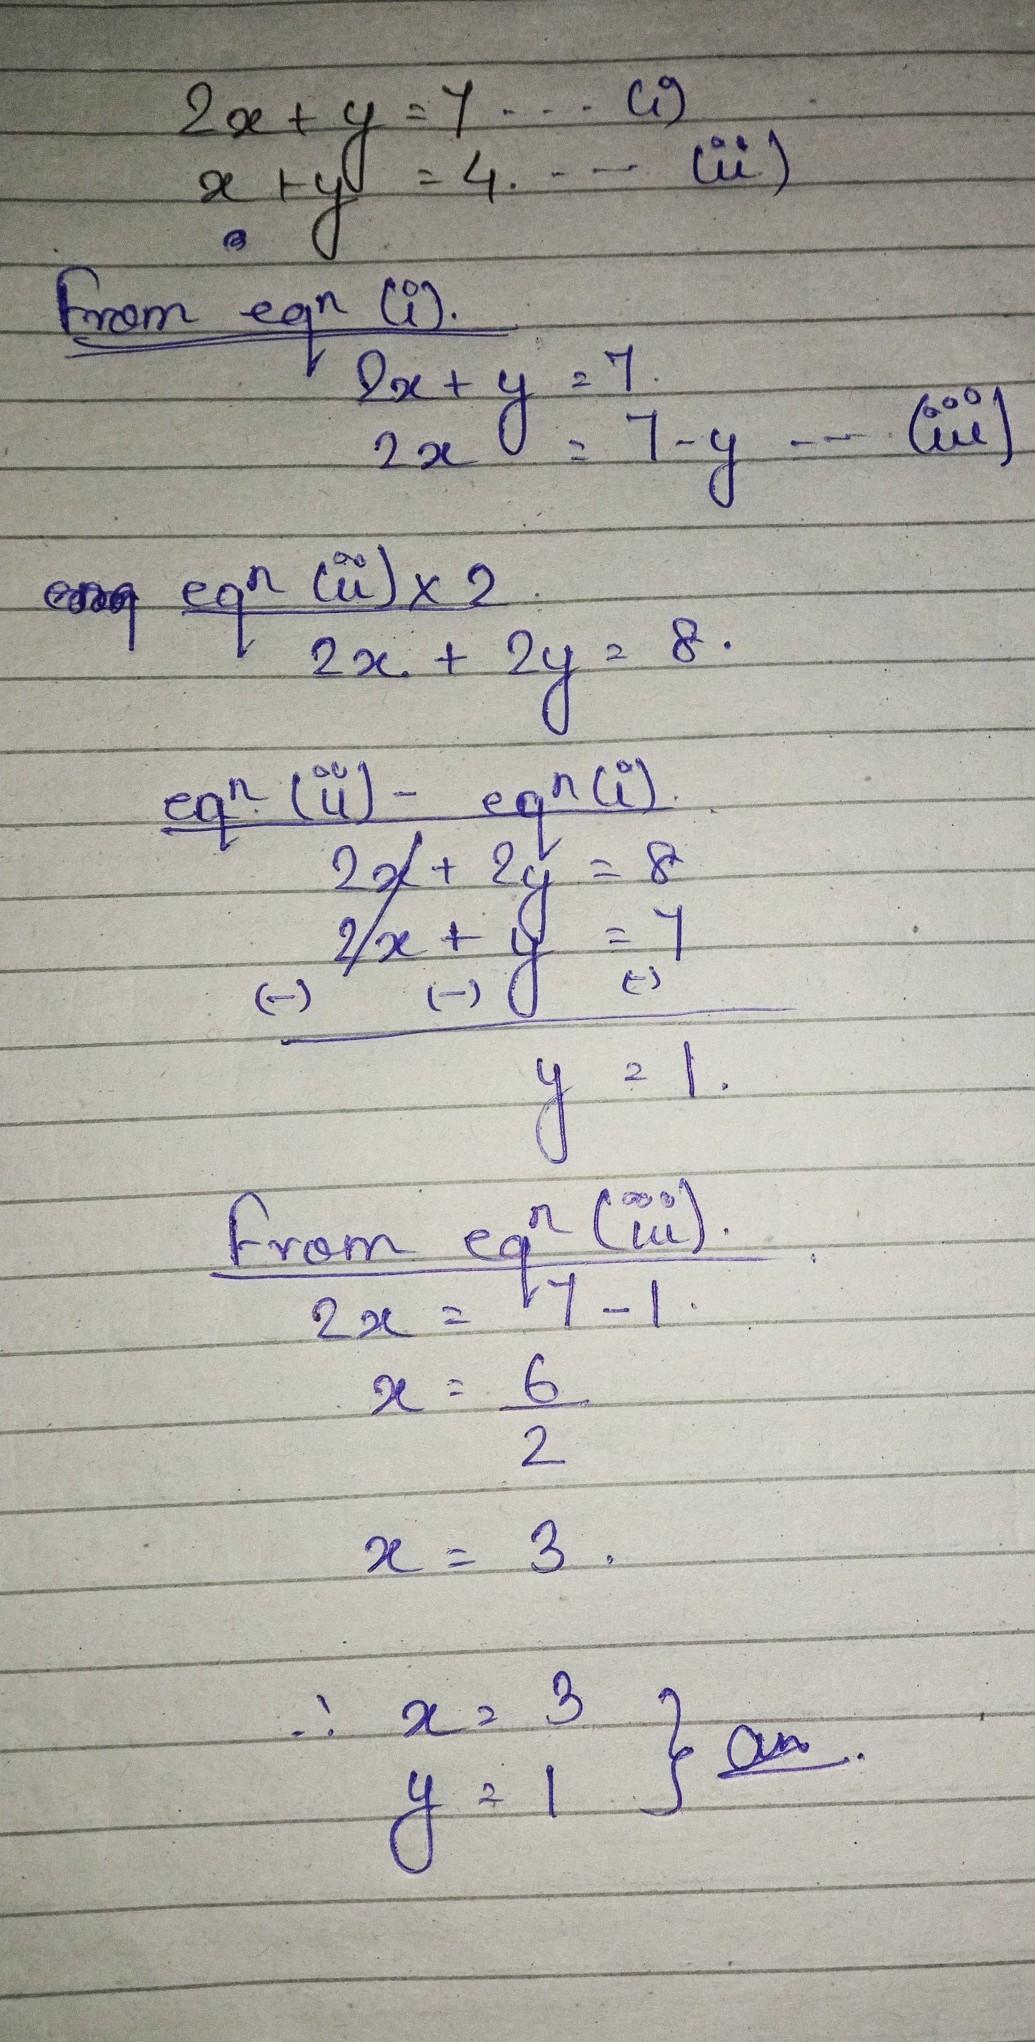 2x + y = 7 .... (i)
x + y = 4. .--- (ii)
From eqn (i).
2x + y = 7.
2x = 7 - y --- (iii)
eqn (ii) x 2.
2x + 2y = 8.
eqn (ii) - eqn (i).
2x + 2y = 8
2x + y = 7
(-) (-) (-)
y = 1.
From eqn (iii).
2x = 7 - 1.
x = 6
2
x = 3.
∴ x = 3
y = 1 } an.